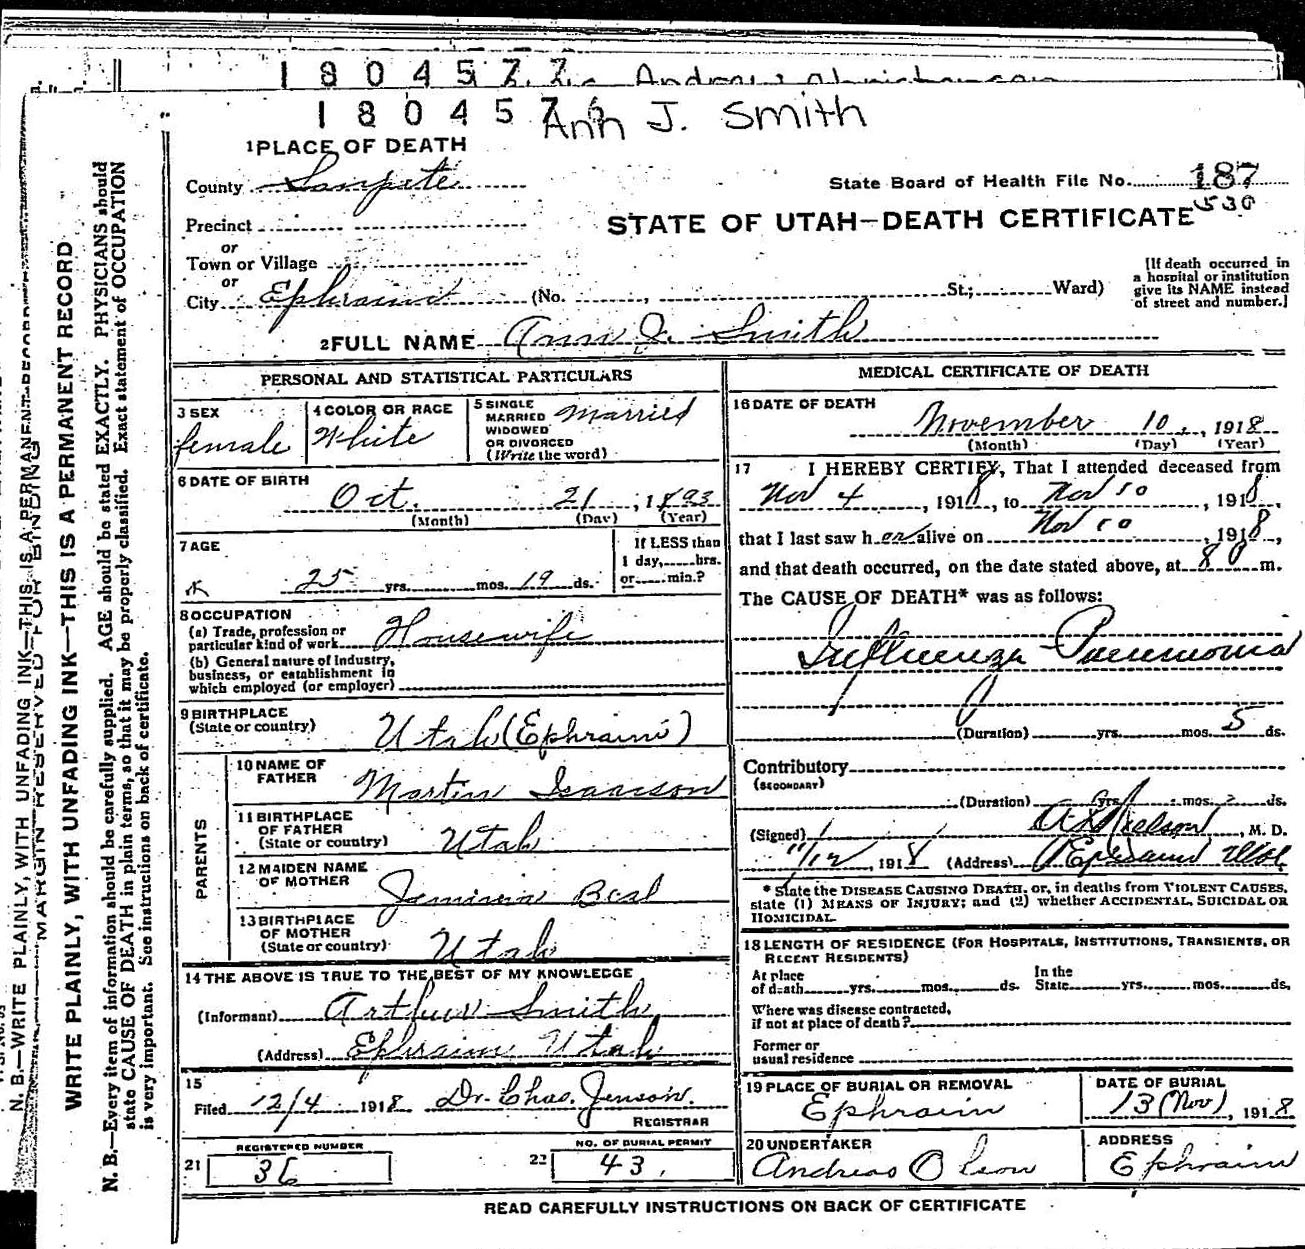 1804577
180457 Ann J. Smith
1 PLACE OF DEATH
County Sanpete
State Board of Health File No. 187
530
STATE OF UTAH—DEATH CERTIFICATE
Precinct
or
Town or Village
or
City Ephraim (No. , St.; Ward)
[If death occurred in
a hospital or institution
give its NAME instead
of street and number.]
2 FULL NAME Ann J. Smith
PERSONAL AND STATISTICAL PARTICULARS
3 SEX
female
4 COLOR OR RACE
White
5 SINGLE
MARRIED
WIDOWED
OR DIVORCED
(Write the word)
Married
6 DATE OF BIRTH
Oct. 21, 1893
(Month) (Day) (Year)
7 AGE
25 yrs. mos. 19 ds.
If LESS than
1 day, hrs.
or min.?
8 OCCUPATION
(a) Trade, profession or
particular kind of work Housewife
(b) General nature of Industry,
business, or establishment in
which employed (or employer)
9 BIRTHPLACE
(State or country) Utah (Ephraim)
PARENTS
10 NAME OF
FATHER Martin Isaacson
11 BIRTHPLACE
OF FATHER
(State or country) Utah
12 MAIDEN NAME
OF MOTHER Jemima Beal
13 BIRTHPLACE
OF MOTHER
(State or country) Utah
14 THE ABOVE IS TRUE TO THE BEST OF MY KNOWLEDGE
(Informant) Arthur Smith
(Address) Ephraim Utah
15
Filed 12/4 1918 Dr. Chas. Jenson.
REGISTRAR
REGISTERED NUMBER
21 36
NO. OF BURIAL PERMIT
22 43
MEDICAL CERTIFICATE OF DEATH
16 DATE OF DEATH
November 10, 1918
(Month) (Day) (Year)
17 I HEREBY CERTIFY, That I attended deceased from
Nov 4, 1918, to Nov 10, 1918,
that I last saw her alive on Nov 10, 1918,
and that death occurred, on the date stated above, at 8 m.
The CAUSE OF DEATH* was as follows:
Influenza Pneumonia
(Duration) yrs. mos. 5 ds.
Contributory
(SECONDARY)
(Duration) yrs. mos. ds.
(Signed) Nielson, M. D.
11/12, 1918 (Address) Ephraim Utah
* State the DISEASE CAUSING DEATH, or, in deaths from VIOLENT CAUSES,
state (1) MEANS OF INJURY; and (2) whether ACCIDENTAL, SUICIDAL OR
HOMICIDAL.
18 LENGTH OF RESIDENCE (FOR HOSPITALS, INSTITUTIONS, TRANSIENTS, OR
RECENT RESIDENTS)
At place
of death yrs. mos. ds.
In the
State yrs. mos. ds.
Where was disease contracted,
if not at place of death?
Former or
usual residence
19 PLACE OF BURIAL OR REMOVAL
Ephraim
DATE OF BURIAL
13 (Nov), 1918
20 UNDERTAKER
Andreas Olson
ADDRESS
Ephraim
READ CAREFULLY INSTRUCTIONS ON BACK OF CERTIFICATE
N. B.—WRITE PLAINLY, WITH UNFADING INK—THIS IS A PERMANENT RECORD
MARGIN RESERVED FOR BINDING
WRITE PLAINLY, WITH UNFADING INK—THIS IS A PERMANENT RECORD
N. B.—Every item of information should be carefully supplied. AGE should be stated EXACTLY. PHYSICIANS should
state CAUSE OF DEATH in plain terms, so that it may be properly classified. Exact statement of OCCUPATION
is very important. See instructions on back of certificate.